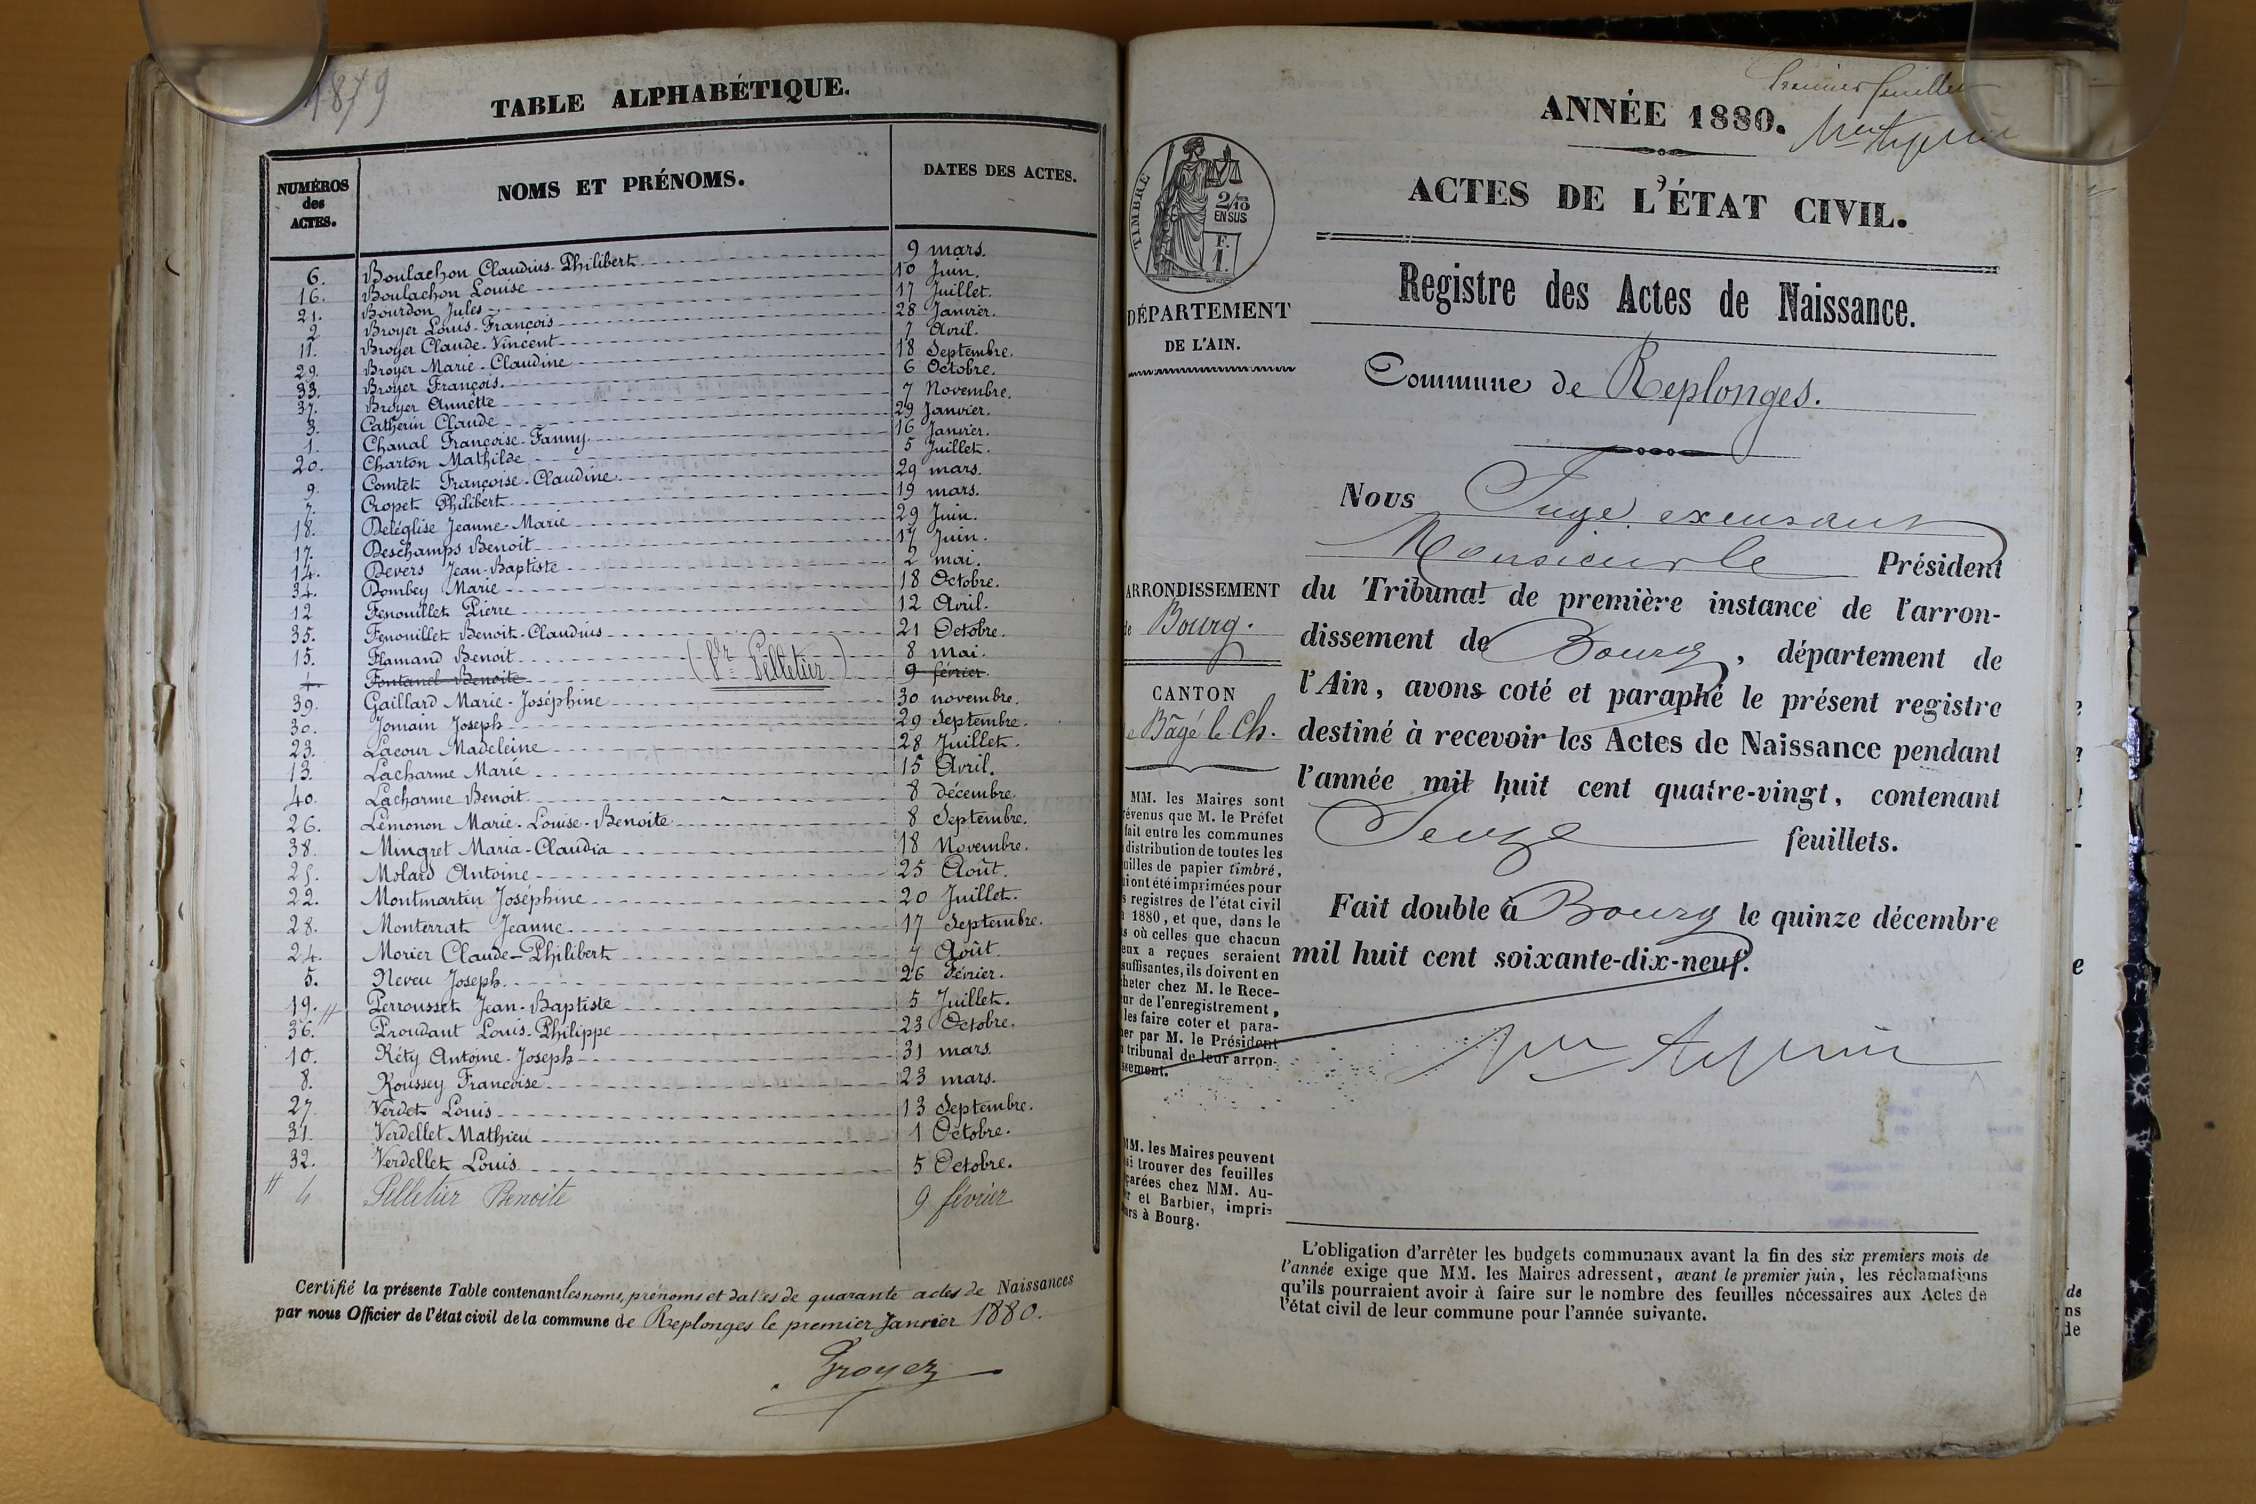 1879
TABLE ALPHABÉTIQUE.
NUMÉROS des ACTES. NOMS ET PRÉNOMS. DATES DES ACTES.
6. Boulachon Claudius-Philibert 9 mars.
16. Boulachon Louise 10 Juin.
21. Bourdon Jules 17 Juillet.
2 Broyer Louis-François 28 Janvier.
11. Broyer Claude-Vincent 7 Avril.
29. Broyer Marie-Claudine 18 Septembre.
33. Broyer François. 6 Octobre.
37. Broyer Annette 7 Novembre.
3. Catherin Claude 29 Janvier.
1. Chanal Françoise-Fanny. 16 Janvier.
20. Charton Mathilde 5 Juillet.
9. Comtet Françoise-Claudine 29 mars.
7. Cropet Philibert 19 mars.
18. Deléglise Jeanne-Marie 29 Juin.
17. Deschamps Benoit 17 Juin.
14. Devers Jean-Baptiste 2 mai.
34. Dombey Marie 18 Octobre.
12 Fenouillet Pierre 12 Avril.
35. Fenouillet Benoit-Claudius 21 Octobre.
15. Flamand Benoit 8 mai.
4. Fontanel Benoite (Vr Pelletier) 9 février.
39. Gaillard Marie-Joséphine 30 novembre.
30. Jomain Joseph 29 Septembre.
23. Lacour Madeleine 28 Juillet.
13. Lacharme Marie 15 Avril.
40. Lacharme Benoit 8 décembre.
26. Lémonon Marie-Louise-Benoite 8 Septembre.
38. Mingret Maria-Claudia 18 Novembre.
25. Molard Antoine 25 Août.
22. Montmartin Joséphine 20 Juillet.
28. Monterrat Jeanne 17 Septembre.
24. Morier Claude-Philibert 7 Août.
5. Neveu Joseph 26 Février.
19. Perrousset Jean-Baptiste 5 Juillet.
36. Proudant Louis-Philippe 23 Octobre.
10. Réty Antoine-Joseph 31 mars.
8. Roussey Françoise 23 mars.
27. Verdet Louis 13 Septembre.
31. Verdellet Mathieu 1 Octobre.
32. Verdellet Louis 5 Octobre.
4 Pelletier Benoite 9 février
Certifié la présente Table contenant les noms, prénoms et dates de quarante actes de Naissances
par nous Officier de l'état civil de la commune de Replonges le premier Janvier 1880.
Broyer
Premier feuillet
ANNÉE 1880.
ACTES DE L'ÉTAT CIVIL.
TIMBRE
2/10
EN SUS
F.
1.
Registre des Actes de Naissance.
DÉPARTEMENT
DE L'AIN.
Commune de Replonges.
Nous Juge excusant
Monsieur le Président
du Tribunal de première instance de l'arron-
dissement de Bourg, département de
l'Ain, avons coté et paraphé le présent registre
destiné à recevoir les Actes de Naissance pendant
l'année mil huit cent quatre-vingt, contenant
Seize feuillets.
Fait double à Bourg le quinze décembre
mil huit cent soixante-dix-neuf.
ARRONDISSEMENT
de Bourg.
CANTON
de Bâgé le Ch.
MM. les Maires sont
révenus que M. le Préfet
fait entre les communes
distribution de toutes les
uilles de papier timbré,
ui ont été imprimées pour
s registres de l'état civil
1880, et que, dans le
s où celles que chacun
eux a reçues seraient
suffisantes, ils doivent en
heter chez M. le Rece-
ur de l'enregistrement,
les faire coter et para-
her par M. le Président
u tribunal de leur arron-
ssement.
MM. les Maires peuvent
si trouver des feuilles
çarées chez MM. Au-
er et Barbier, impri-
urs à Bourg.
L'obligation d'arrêter les budgets communaux avant la fin des six premiers mois de
l'année exige que MM. les Maires adressent, avant le premier juin, les réclamations
qu'ils pourraient avoir à faire sur le nombre des feuilles nécessaires aux Actes de
l'état civil de leur commune pour l'année suivante.